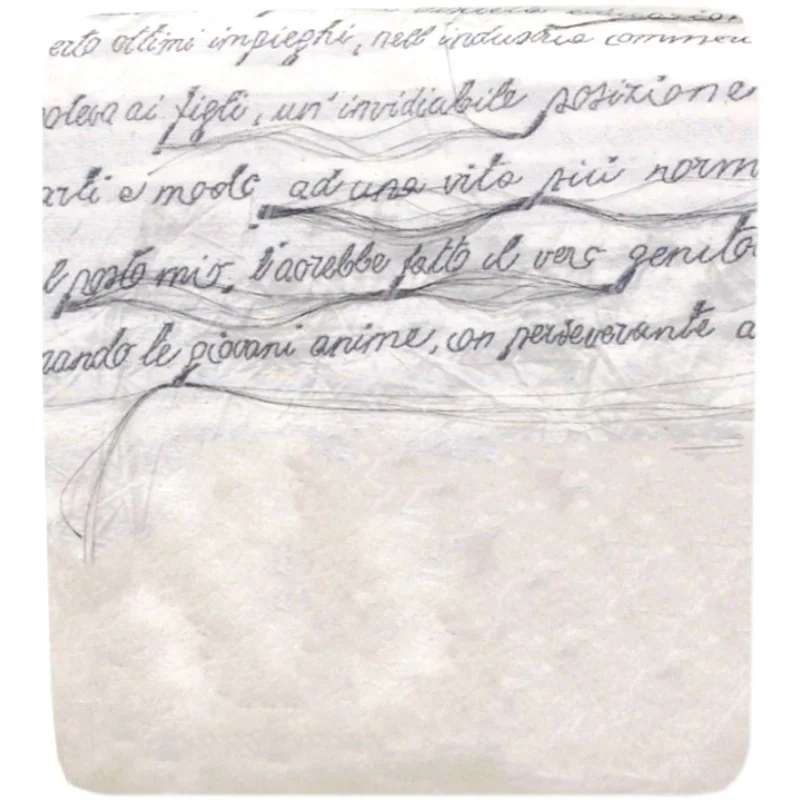 erto ottimi impieghi, nell'industria commerc
voleva ai figli, un'invidiabile posizione
arti e modo ad una vita più norm
l posto mio, l'avrebbe fatto il vero genito
nando le giovani anime, con perseverante a